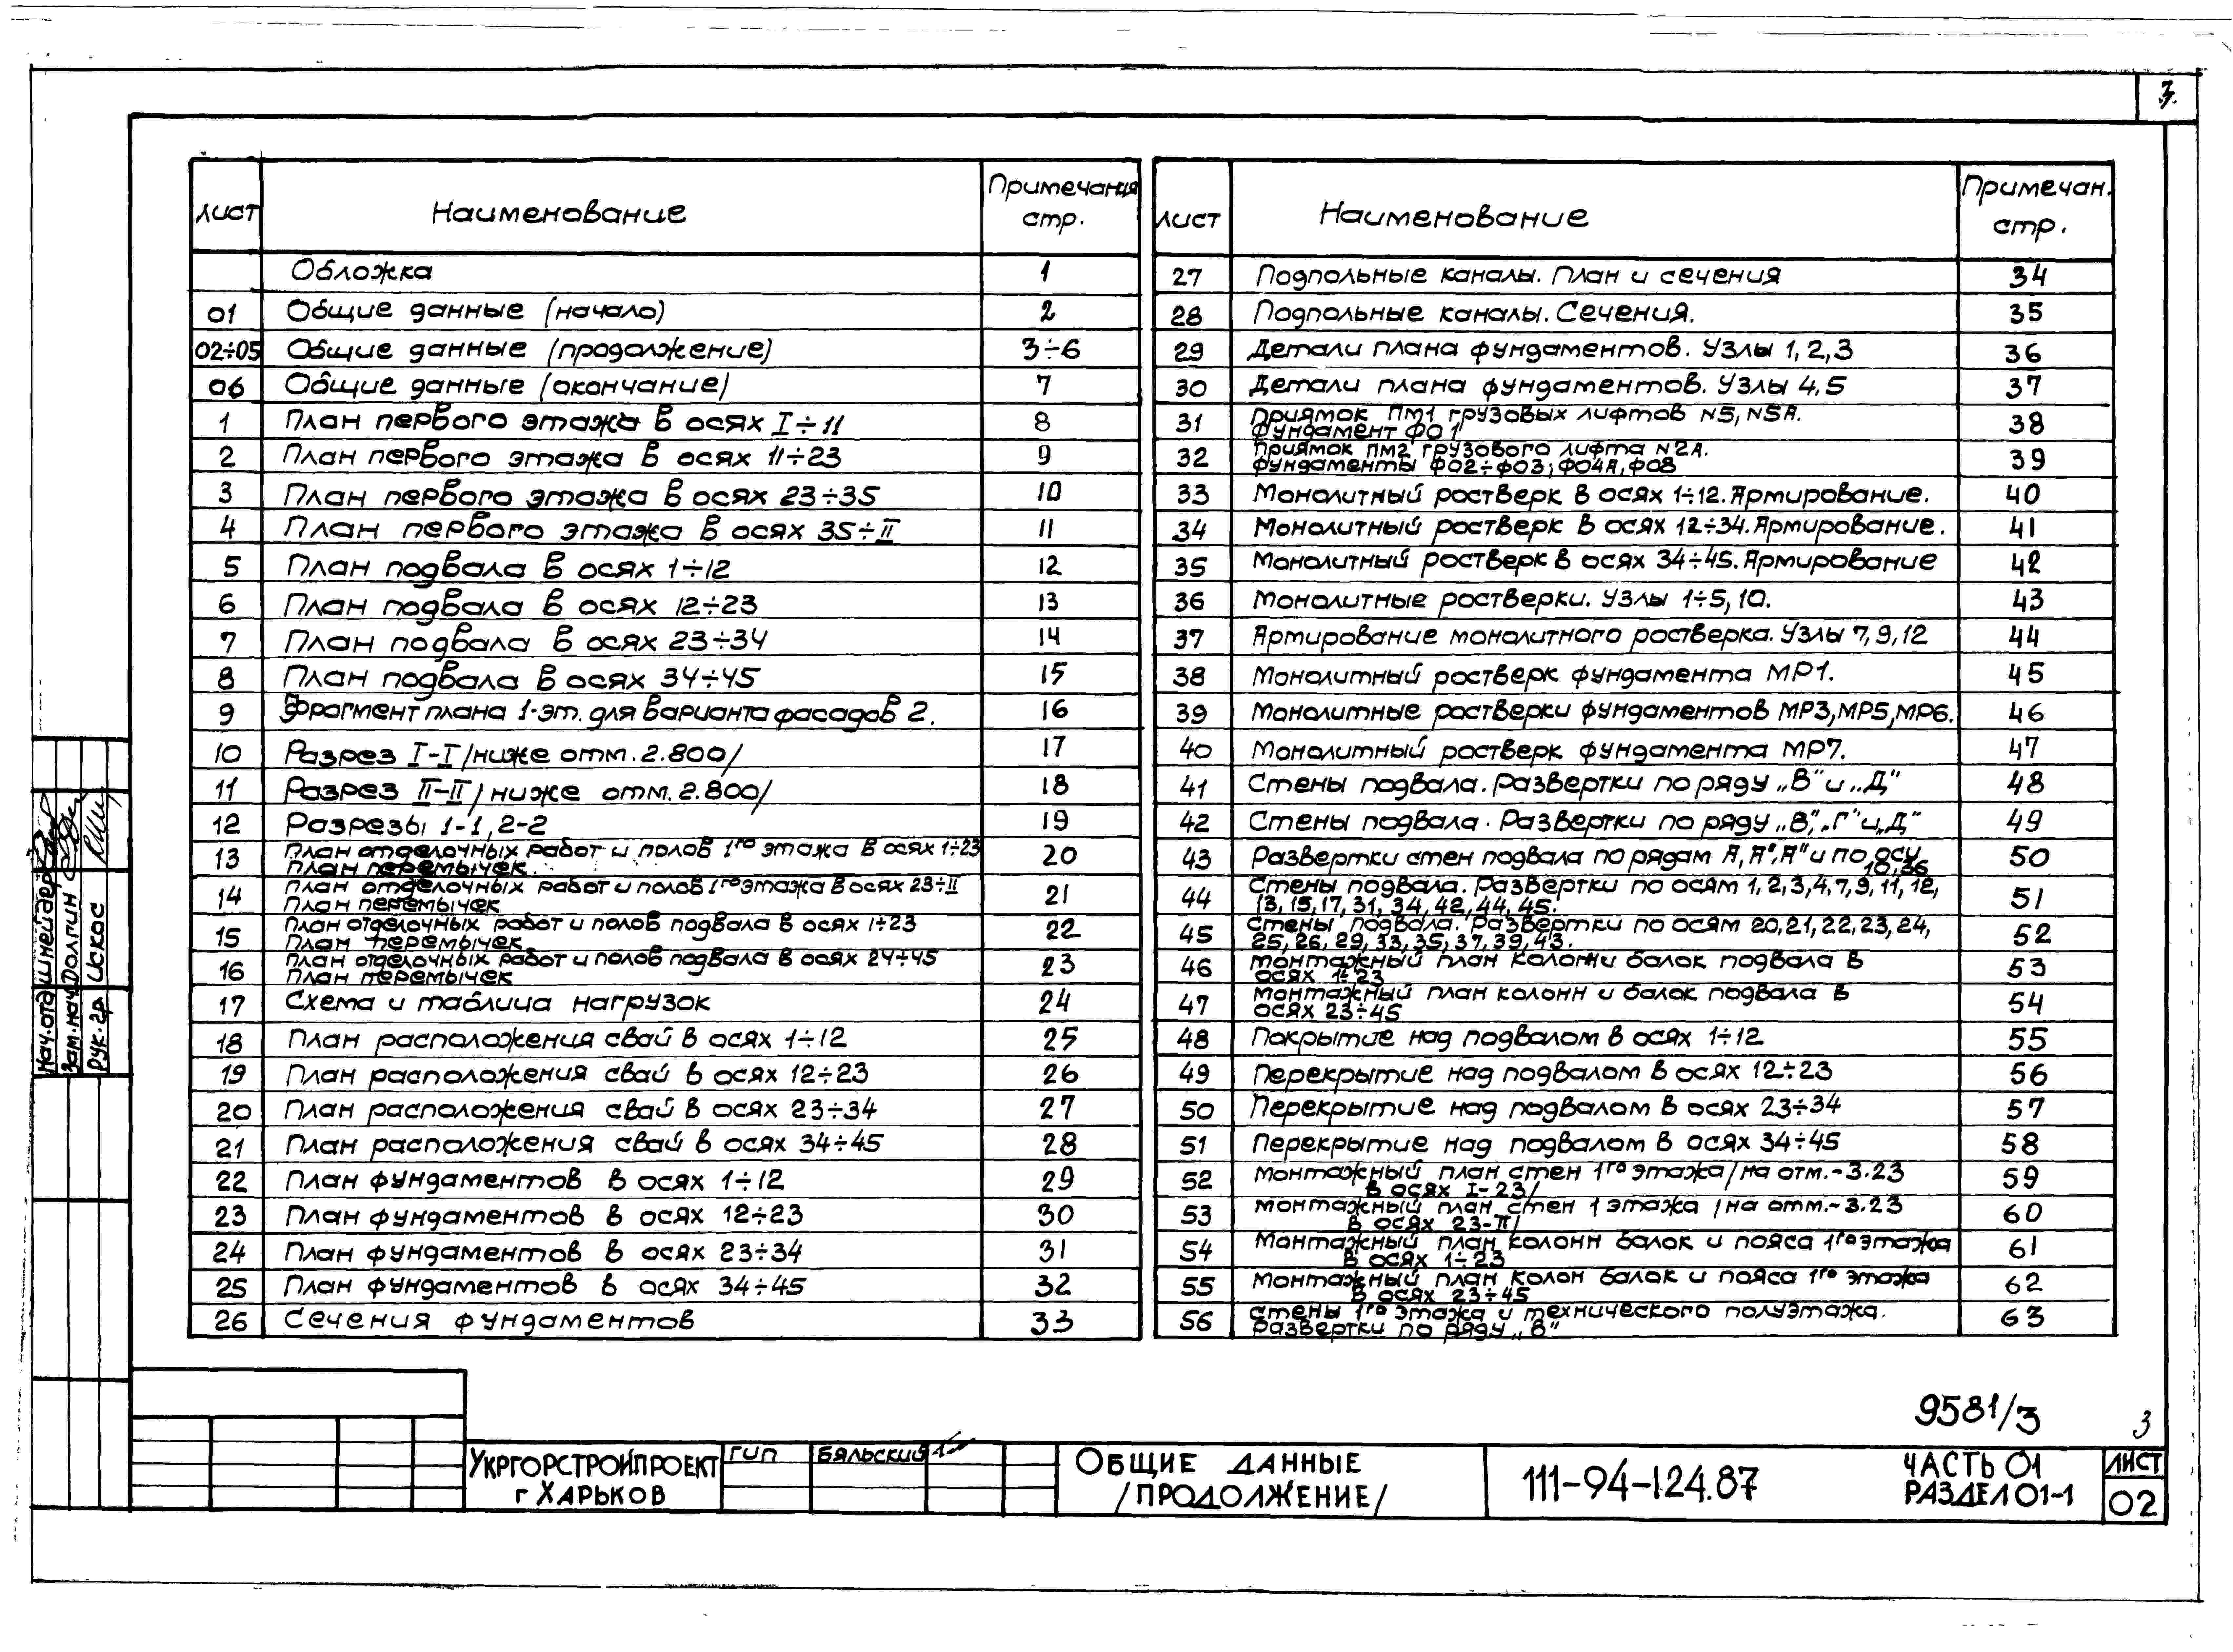 3
Лист Наименование Примечания стр.
Обложка 1
01 Общие данные (начало) 2
02÷05 Общие данные (продолжение) 3÷6
06 Общие данные (окончание) 7
1 План первого этажа в осях I÷11 8
2 План первого этажа в осях 11÷23 9
3 План первого этажа в осях 23÷35 10
4 План первого этажа в осях 35÷II 11
5 План подвала в осях 1÷12 12
6 План подвала в осях 12÷23 13
7 План подвала в осях 23÷34 14
8 План подвала в осях 34÷45 15
9 Фрагмент плана 1-эт. для варианта фасадов 2. 16
10 Разрез I-I /ниже отм. 2.800/ 17
11 Разрез II-II /ниже отм. 2.800/ 18
12 Разрезы 1-1, 2-2 19
13 План отделочных работ и полов 1го этажа в осях 1÷23
План перемычек 20
14 План отделочных работ и полов 1го этажа в осях 23÷II
План перемычек 21
15 План отделочных работ и полов подвала в осях 1÷23
План перемычек 22
16 План отделочных работ и полов подвала в осях 24÷45
План перемычек 23
17 Схема и таблица нагрузок 24
18 План расположения свай в осях 1÷12 25
19 План расположения свай в осях 12÷23 26
20 План расположения свай в осях 23÷34 27
21 План расположения свай в осях 34÷45 28
22 План фундаментов в осях 1÷12 29
23 План фундаментов в осях 12÷23 30
24 План фундаментов в осях 23÷34 31
25 План фундаментов в осях 34÷45 32
26 Сечения фундаментов 33
Лист Наименование Примечан. стр.
27 Подпольные каналы. План и сечения 34
28 Подпольные каналы. Сечения. 35
29 Детали плана фундаментов. Узлы 1, 2, 3 36
30 Детали плана фундаментов. Узлы 4, 5 37
31 Приямок ПМ1 грузовых лифтов N5, N5А.
Фундамент ФО1 38
32 Приямок ПМ2 грузового лифта N2А.
Фундаменты ФО2÷ФО3; ФО4А, ФО8 39
33 Монолитный ростверк в осях 1÷12. Армирование. 40
34 Монолитный ростверк в осях 12÷34. Армирование. 41
35 Монолитный ростверк в осях 34÷45. Армирование 42
36 Монолитные ростверки. Узлы 1÷5, 10. 43
37 Армирование монолитного ростверка. Узлы 7, 9, 12 44
38 Монолитный ростверк фундамента МР1. 45
39 Монолитные ростверки фундаментов МР3, МР5, МР6. 46
40 Монолитный ростверк фундамента МР7. 47
41 Стены подвала. Развертки по ряду „В" и „Д" 48
42 Стены подвала. Развертки по ряду „В", „Г" и „Д" 49
43 Развертки стен подвала по рядам А, А", А" и по оси
10, 36 50
44 Стены подвала. Развертки по осям 1, 2, 3, 4, 7, 9, 11, 12,
13, 15, 17, 31, 34, 42, 44, 45. 51
45 Стены подвала. Развертки по осям 20, 21, 22, 23, 24,
25, 26, 29, 33, 35, 37, 39, 43. 52
46 Монтажный план колонн и балок подвала в
осях 1÷23 53
47 Монтажный план колонн и балок подвала в
осях 23÷45 54
48 Покрытие над подвалом в осях 1÷12 55
49 Перекрытие над подвалом в осях 12÷23 56
50 Перекрытие над подвалом в осях 23÷34 57
51 Перекрытие над подвалом в осях 34÷45 58
52 Монтажный план стен 1го этажа /на отм.-3.23
в осях I-23/ 59
53 Монтажный план стен 1 этажа /на отм.-3.23
в осях 23-II/ 60
54 Монтажный план колонн балок и пояса 1го этажа
в осях 1÷23 61
55 Монтажный план колон балок и пояса 1го этажа
в осях 23÷45 62
56 Стены 1го этажа и технического полуэтажа.
Развертки по ряду „В" 63
Нач. отд Шнейдер
Зам. нач Долгин
Рук. гр. Искос
9581/3 3
Укргорстройпроект
г Харьков
ГИП Бяльский
Общие данные
/продолжение/
111-94-124.87
Часть 01
Раздел 01-1
Лист
02